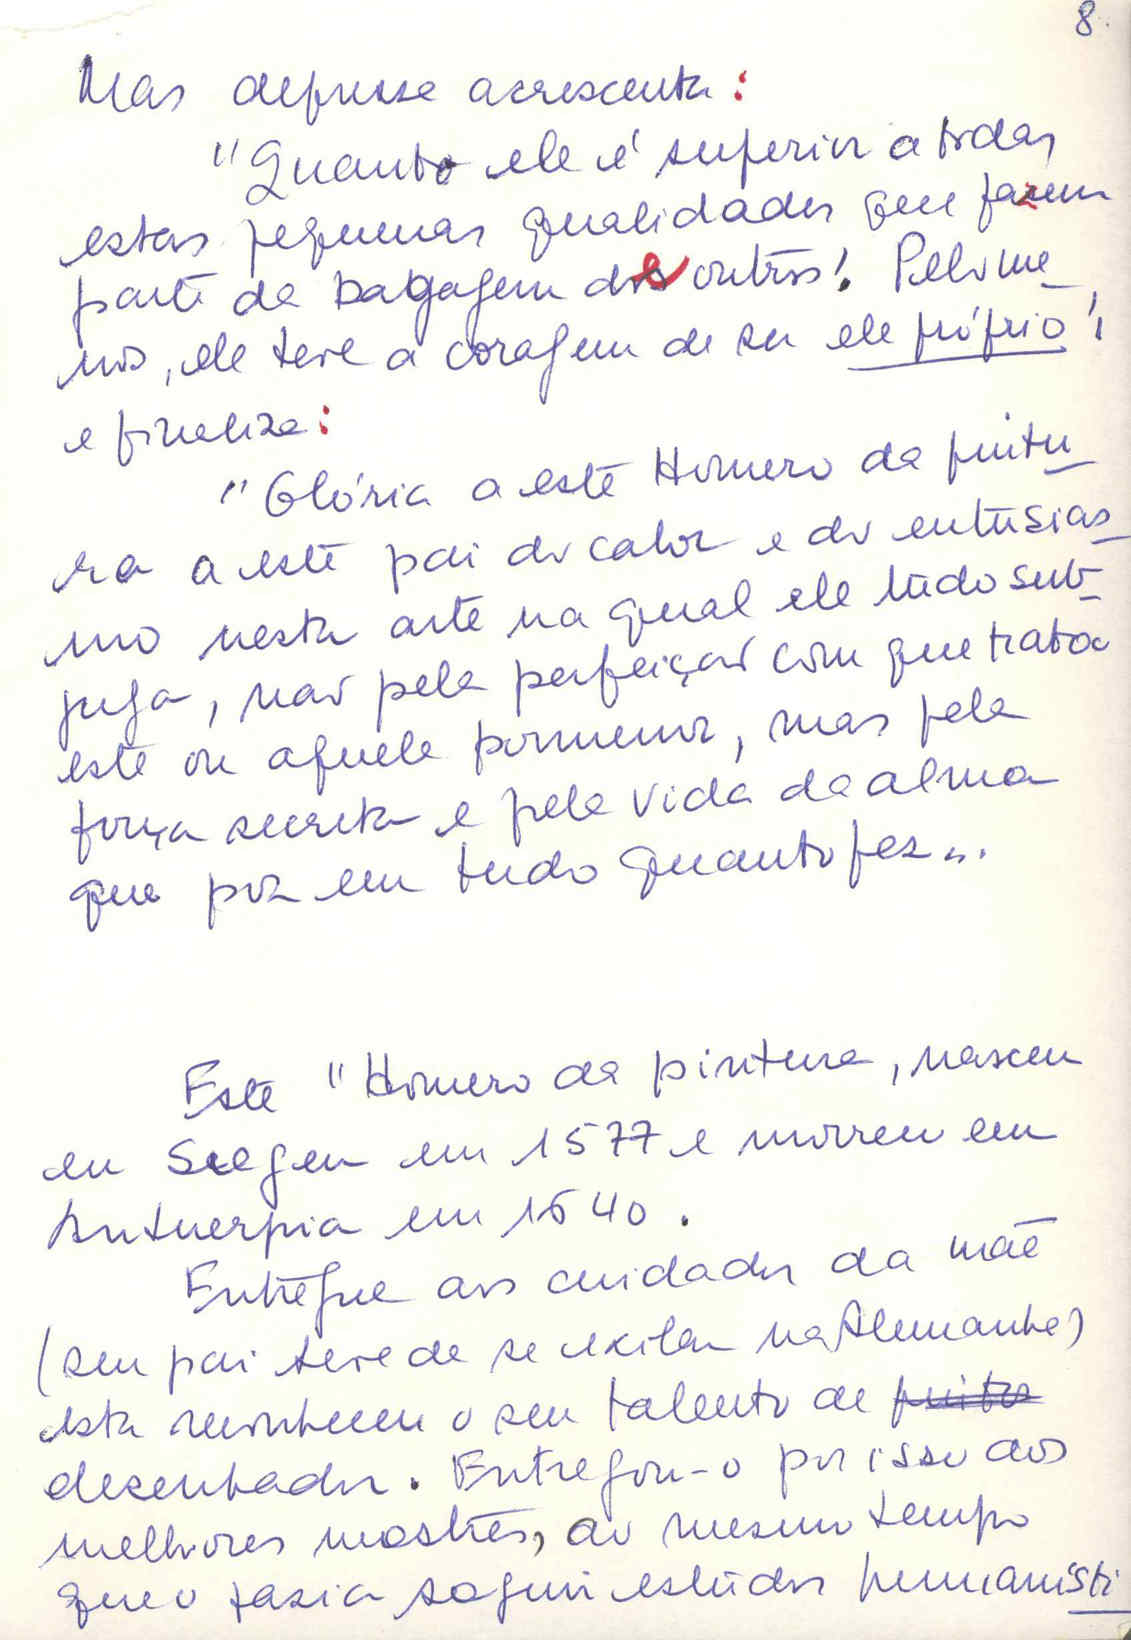 8.
Mas depressa acrescenta:
"Quanto ele é superior a todas
estas pequenas qualidades que fazem
parte da bagagem dos outros! Pelo me-
nos, ele teve a coragem de ser ele próprio";
e finaliza:
"Glória a este Homero da pintu-
ra a este pai do calor e do entusias-
mo nesta arte na qual ele tudo sub-
juga, não pela perfeição com que trata
este ou aquele pormenor, mas pela
força secreta e pela vida da alma
que poz em tudo quanto fez...
Este "Homero da pintura, nasceu
em Siegen em 1577 e morreu em
Antuerpia em 1640.
Entregue aos cuidados da mãe
(seu pai teve de se exilar na Alemanha)
esta reconheceu o seu talento de pintor
desenhador. Entregou-o por isso aos
melhores mestres, ao mesmo tempo
que o fazia seguir estudos humanisti-